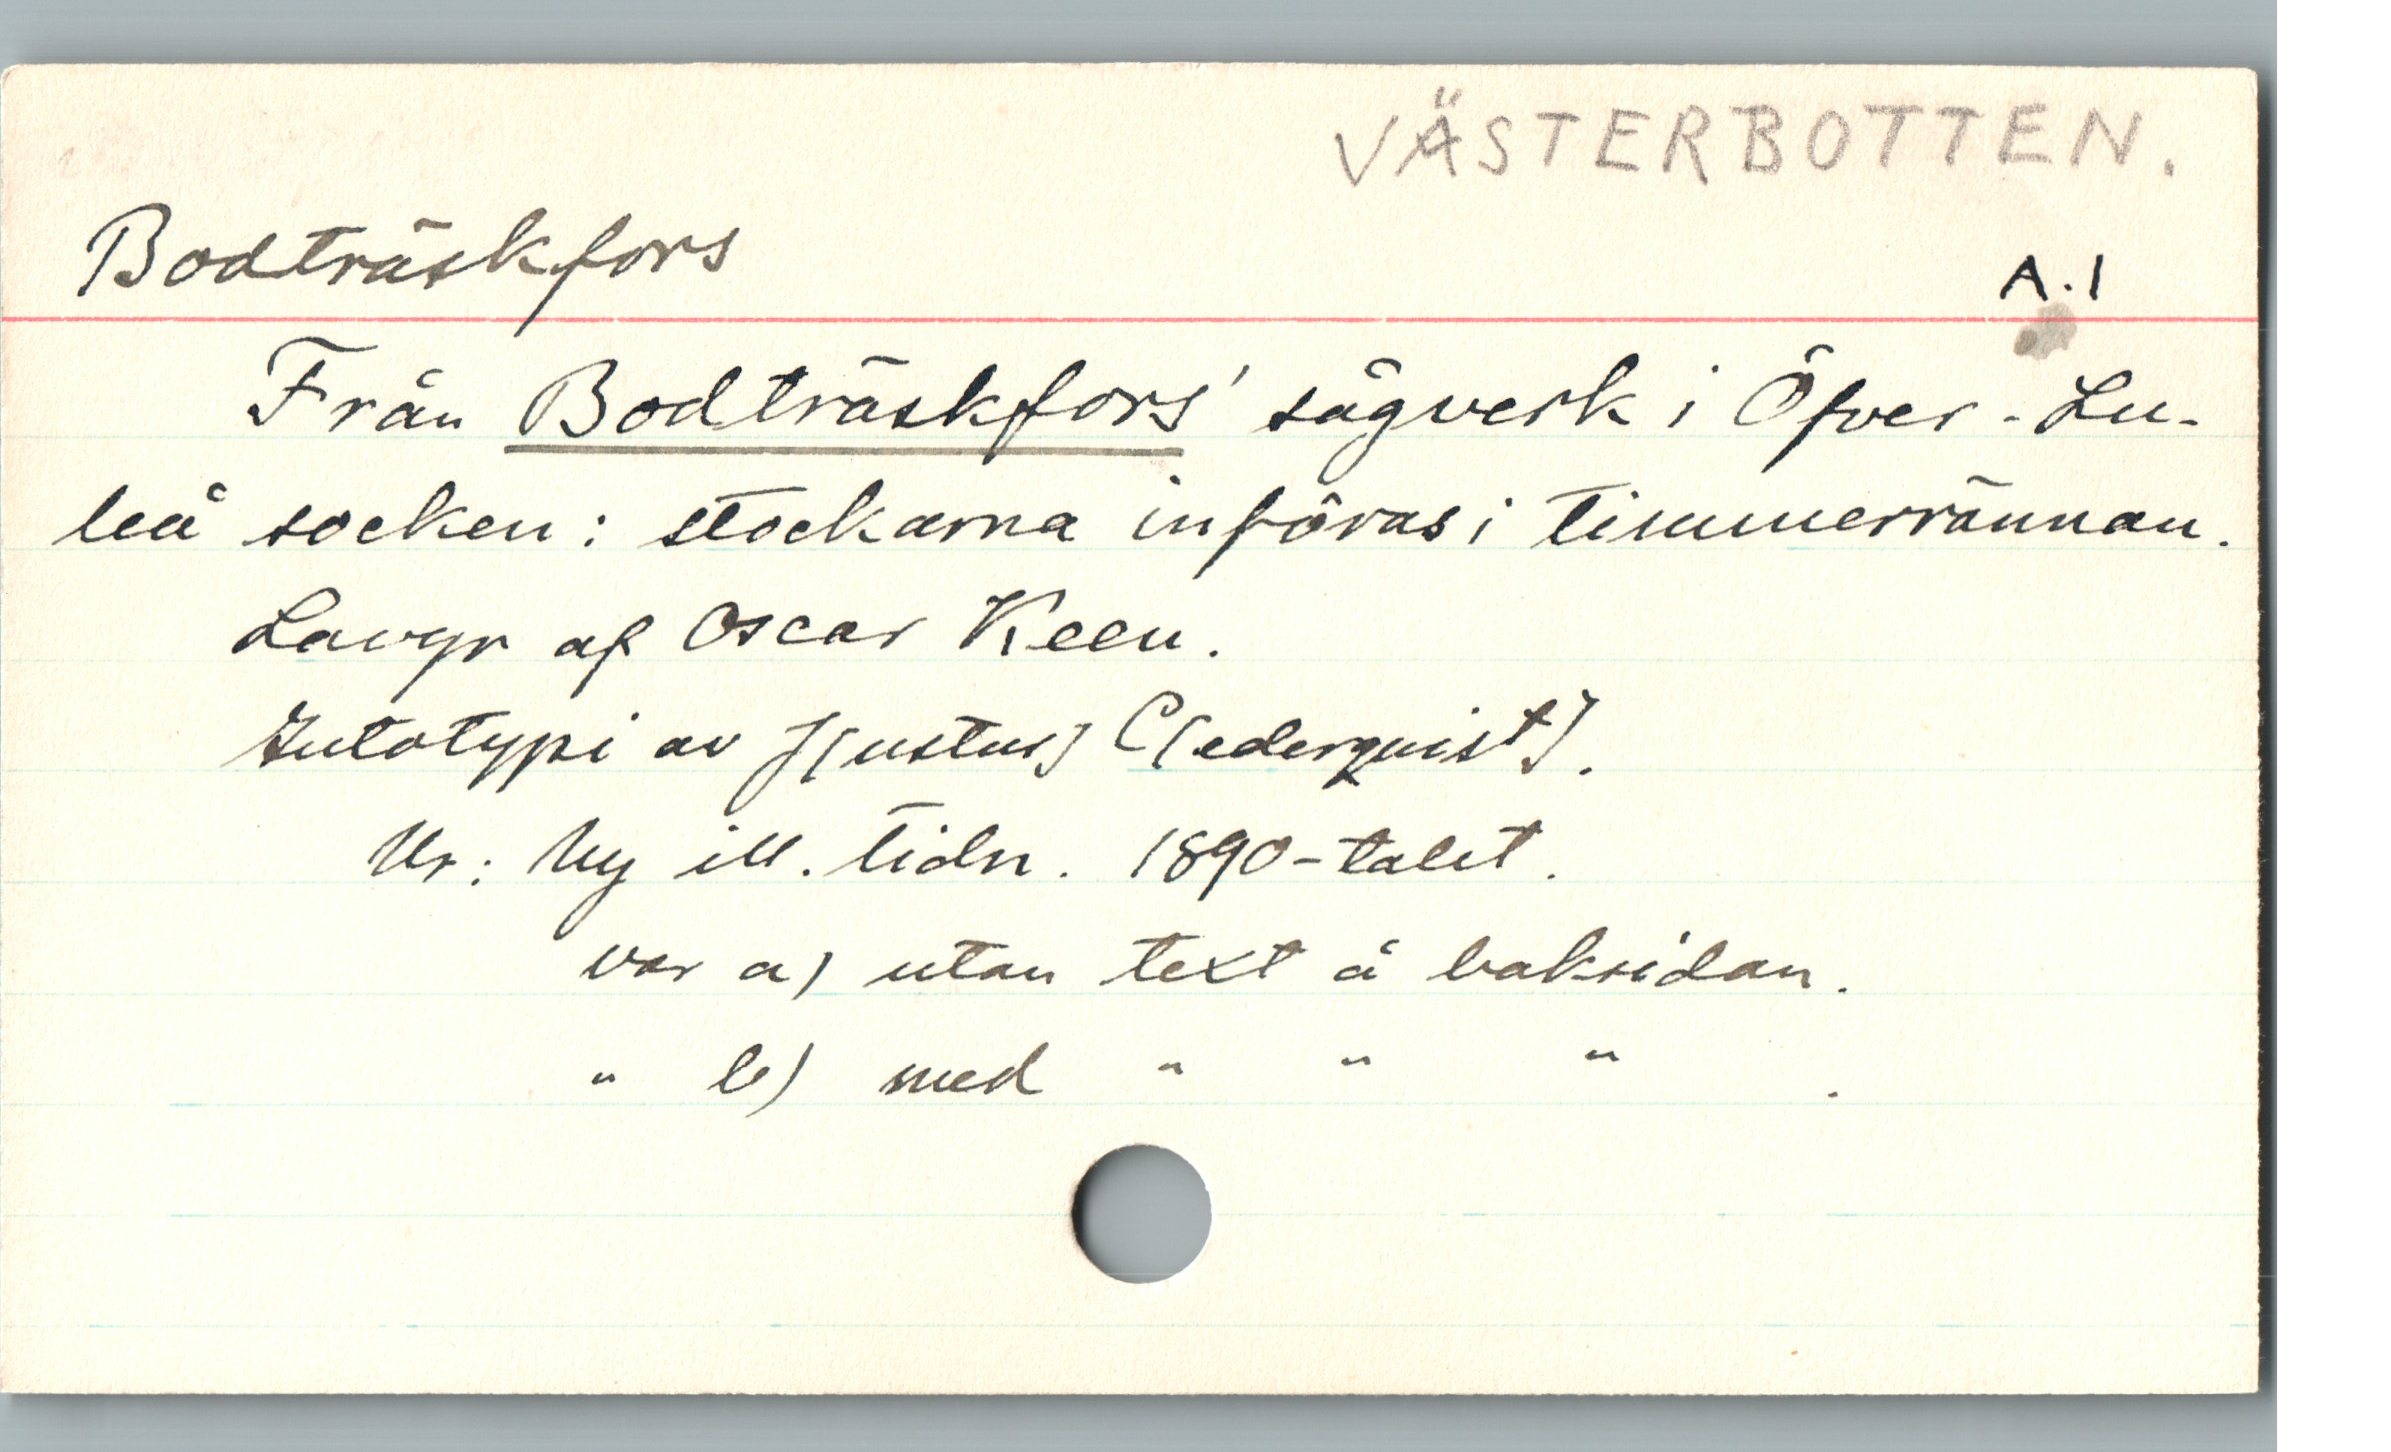 VÄSTERBOTTEN.
Bodträskfors
A.1
Från Bodträskfors' sågverk i Öfver-Lu-
leå socken: stockarna införas i timmerrännan.
Lavyr af Oscar Keen.
Autotypi av J[ustus] C[ederquist].
Ur: Ny ill. tidn. 1890-talet.
var a) utan text å baksidan.
" b) med " " " .